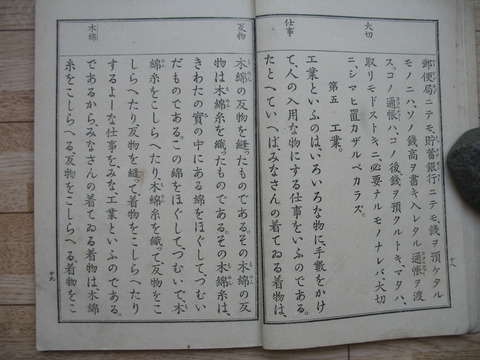 大切
仕事
郵便局ニテモ、貯蓄銀行ニテモ、錢ヲ預ケタル
モノニハ、ソノ錢高ヲ書キ入レタル通帳ヲ渡
ス。コノ通帳ハ、コノ後、錢ヲ預クルトキ、マタハ、
取リモドストキニ、必要ナルモノナレバ、大切
ニ、シマヒ置カザルベカラズ。
第五 工業。
工業といふのは、いろいろな物に、手數をかけ
て、人の入用な物にする仕事をいふのである。
たとへていへば、みなさんの着てゐる着物は、
十八
反物
木綿
木綿の反物を縫ったものである。その木綿の反
物は木綿糸を織ったものである。その木綿糸は、
きわたの實の中にある綿をほぐして、つむい
だものである。この綿をほぐして、つむいで、木
綿糸をこしらへたり、木綿糸を織って、反物をこ
しらへたり、反物を縫って着物をこしらへたり
するよーな仕事を、みな、工業といふのである。
であるから、みなさんの着てゐる着物は木綿
糸をこしらへる、反物をこしらへる、着物をこ
十九